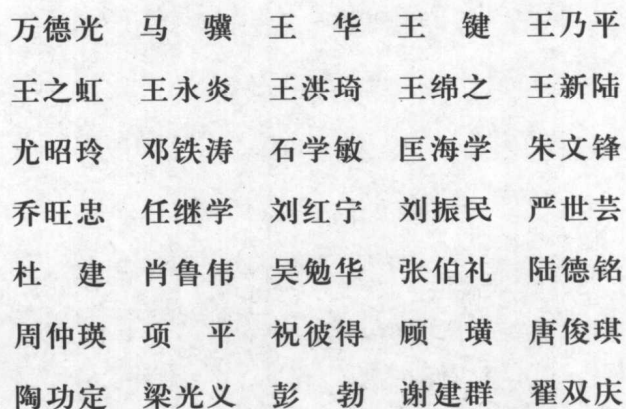 万德光 马 骥 王 华 王 键 王乃平
王之虹 王永炎 王洪琦 王绵之 王新陆
尤昭玲 邓铁涛 石学敏 匡海学 朱文锋
乔旺忠 任继学 刘红宁 刘振民 严世芸
杜 建 肖鲁伟 吴勉华 张伯礼 陆德铭
周仲瑛 项 平 祝彼得 顾 璜 唐俊琪
陶功定 梁光义 彭 勃 谢建群 翟双庆